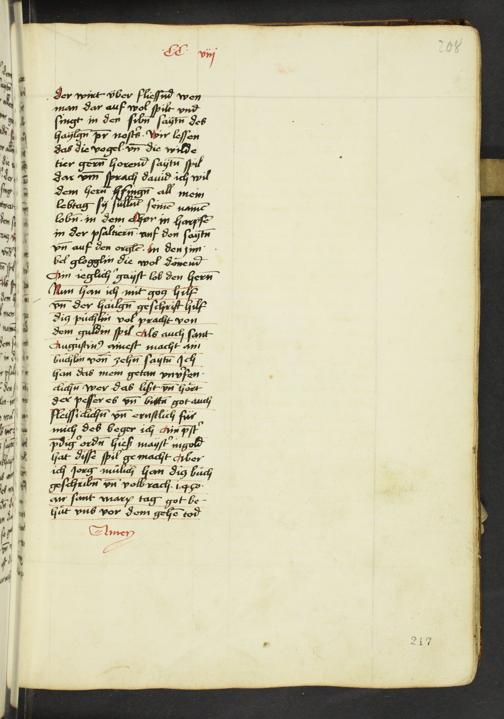 CC viij
208
der wirt über fliessend wen
man dar auf wol spilt und
singt in den sibn̄ saytn̄ des
haylgn̄ pr̄ nostr̄s. Wir lessen
das die vogel vn̄ die wilde
tier gern̄ horend saytn̄ spil
dar vm̄ sprach david ich wil
dem hern̄ singn̄ all mein
lebtag sy sullen̄ seinē namē
lobn̄. in dem Chor in harpfe
in der psaltern̄ auf den saytn̄
vn̄ auf den orgle. in den zim
bel glogglin die wol donend
Ein ieglich gayst lob den hern̄
Nun han ich mit gotz hilf
vn̄ der hailgn̄ geschrift hilf
diz puchlin vol pracht von
dem guldin spil Als auch sant
Augustin9 ainest macht ain
buchlin von zehn̄ saytn̄ Ich
han das mein getan
dichn̄ wer das list vn̄ hört
der pesser es vn̄ bittn̄ got auch
fleissiclichn̄ vn̄ ernstlich für
mich des beger ich Ain pr̄st
pdigr̄ ordn̄ hiess mayst ingold
hat disse spil gemacht Aber
ich Jorg mülich han diz buch
geschribn̄ vn̄ volbracht 1450
an sant marx tag got be-
hüt vns vor dem gehē tod
Amen
217